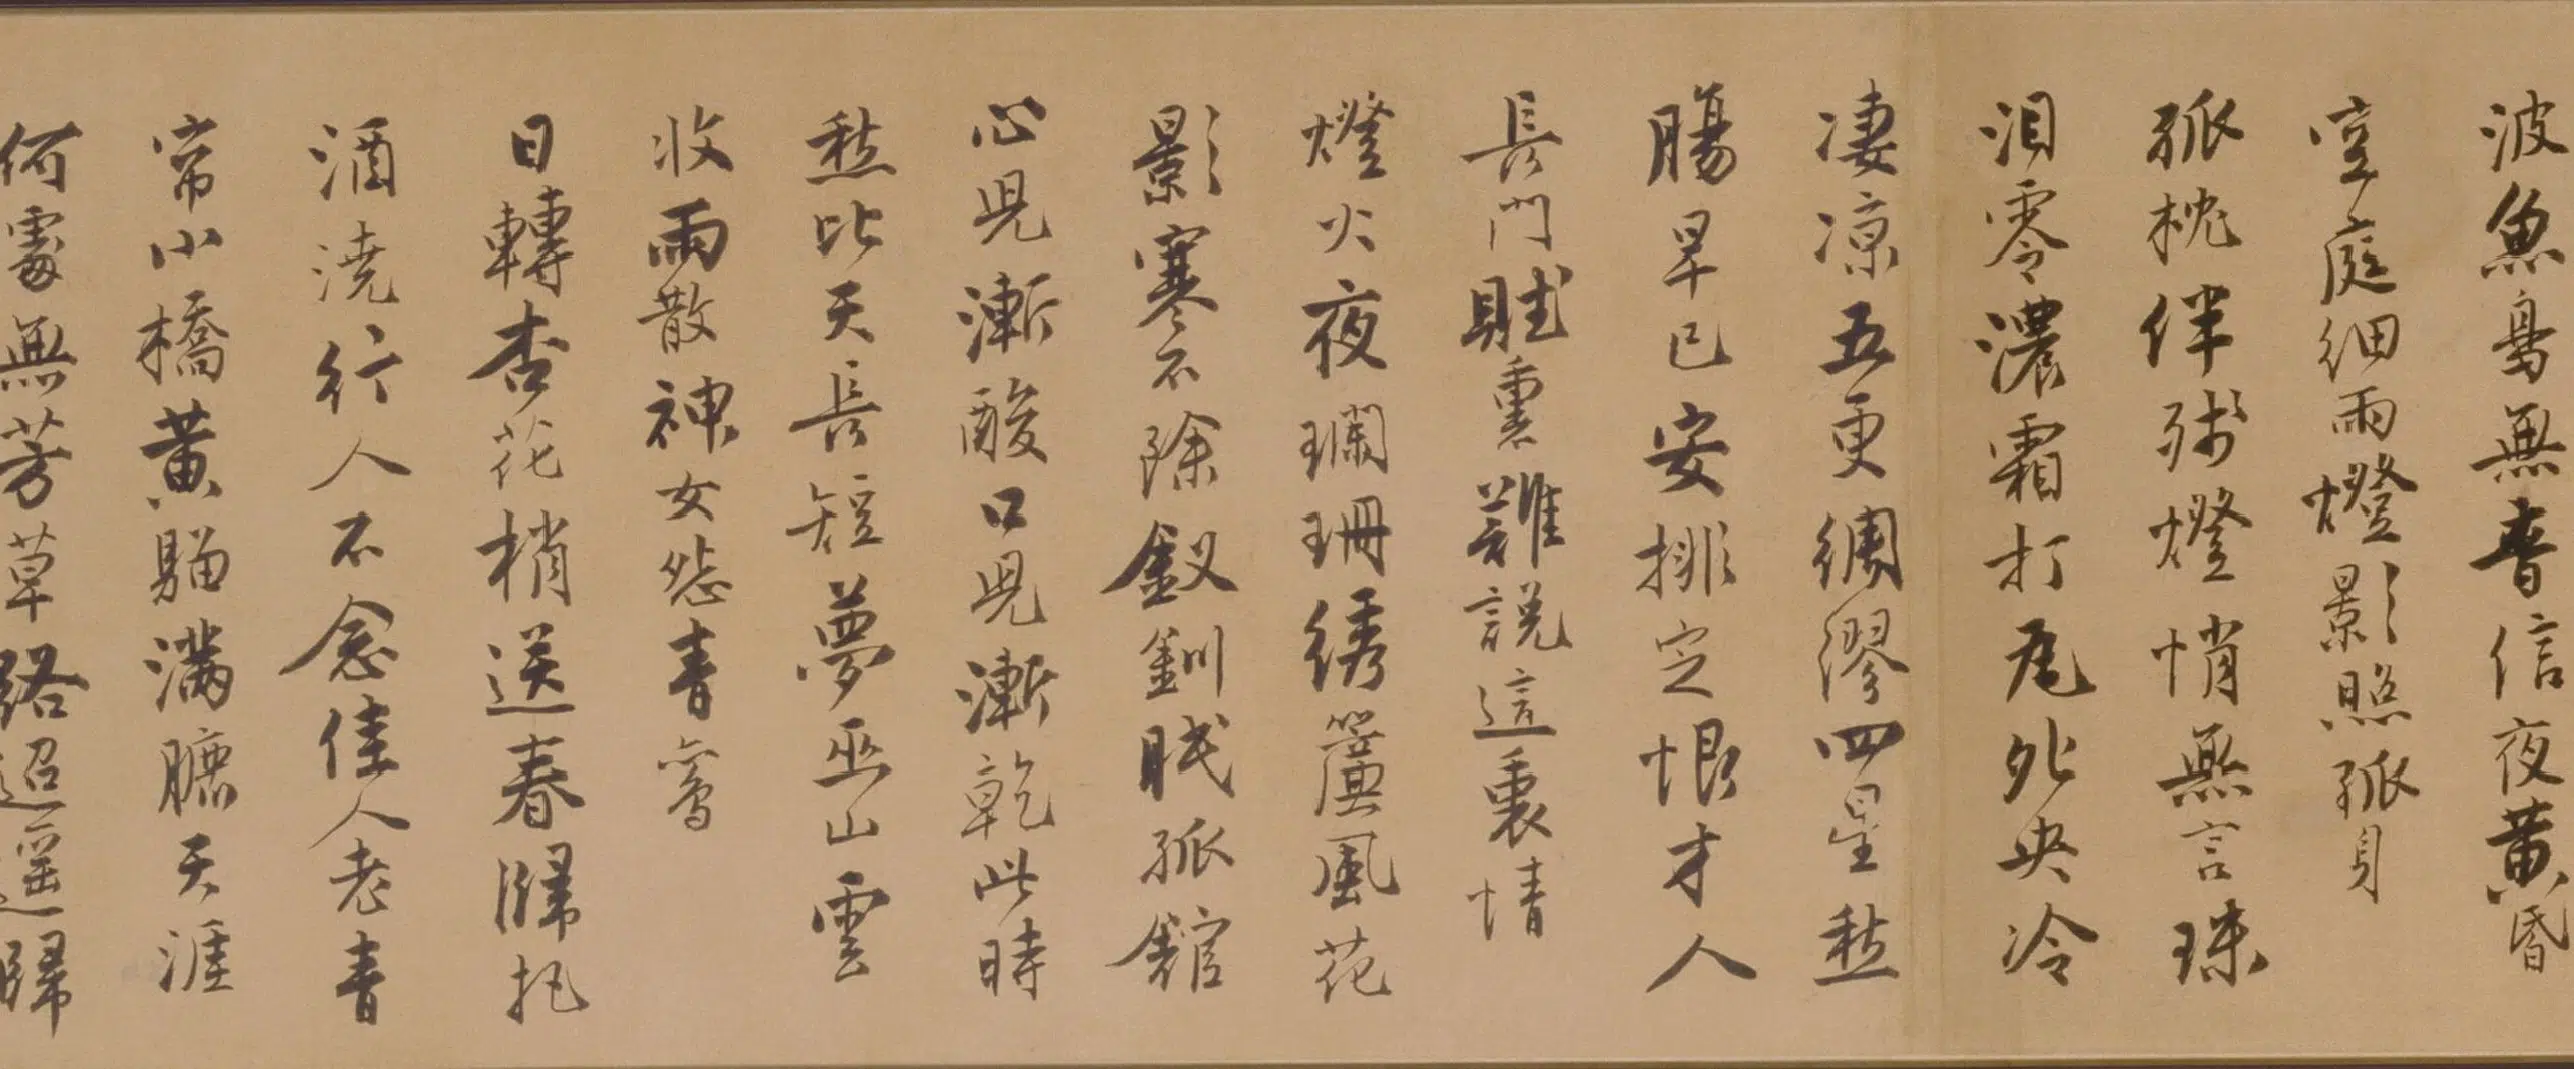 波魚鳥無音信夜黄昏
空庭細雨燈影照孤身
孤枕伴殘燈悄無言珠
淚零濃霜打瓦鴛央冷
凄涼五更綢繆四星愁
腸早已安排定恨才人
長門賦裏難說這裏情
燈火夜瓓珊綉簾風花
影寒不除釵釧眠孤舘
心兒漸酸口兒漸乾此時
愁比天長短夢巫山雲
收雨散神女怨青鸞
日轉杏花梢送春歸把
酒澆行人不念佳人老青
帘小橋黄鸝滿膔天涯
何處無芳草路迢遥歸